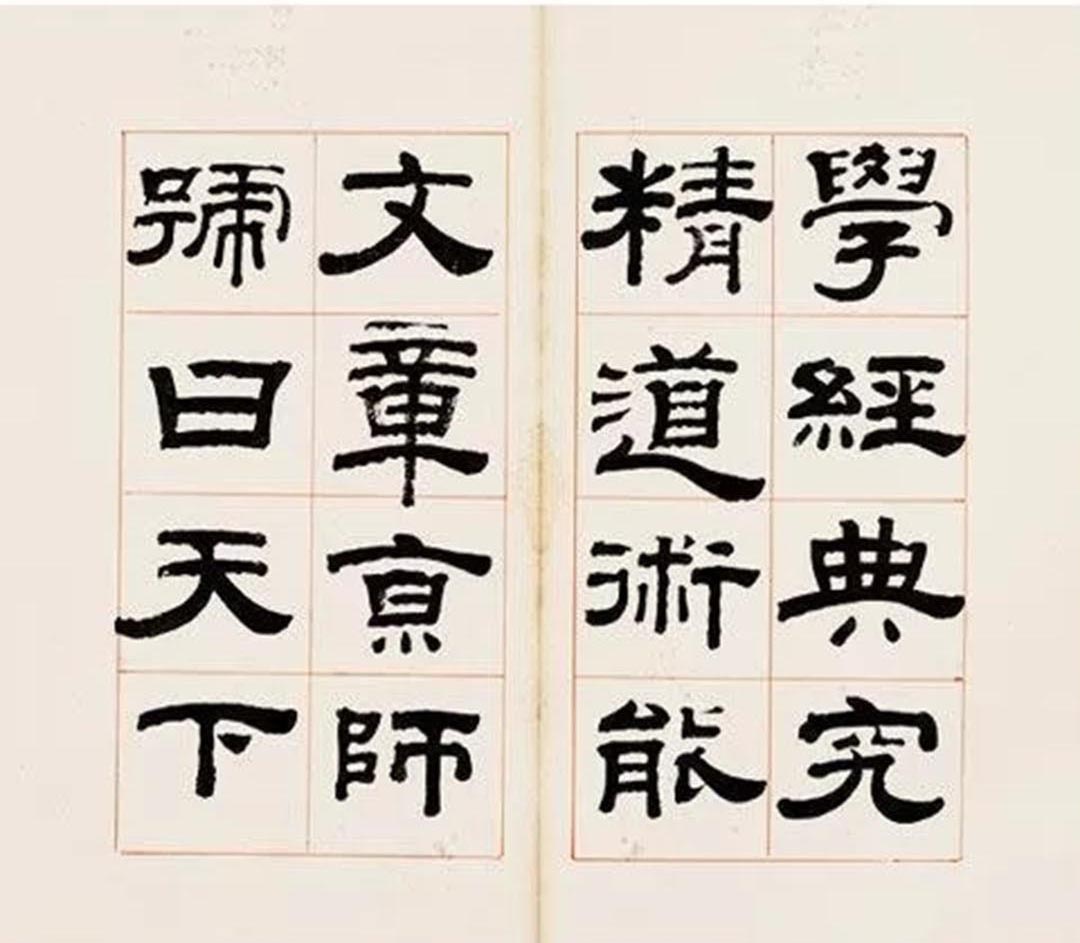 學經典究
精道術能
文章亰師
號曰天下